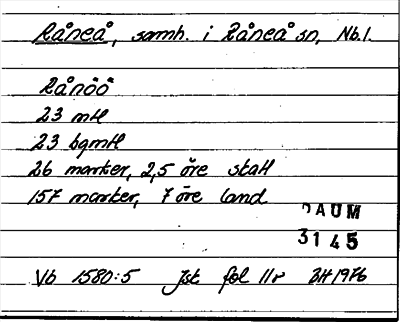 Råneå, samh. i Råneå sn, Nb.l.
Rånöö
23 mtl
23 bgmtl
26 marker, 2,5 öre skatt
157 marker, 7 öre land
DAUM
3145
Vb 1580:5 Jst fol 11r BH 1976